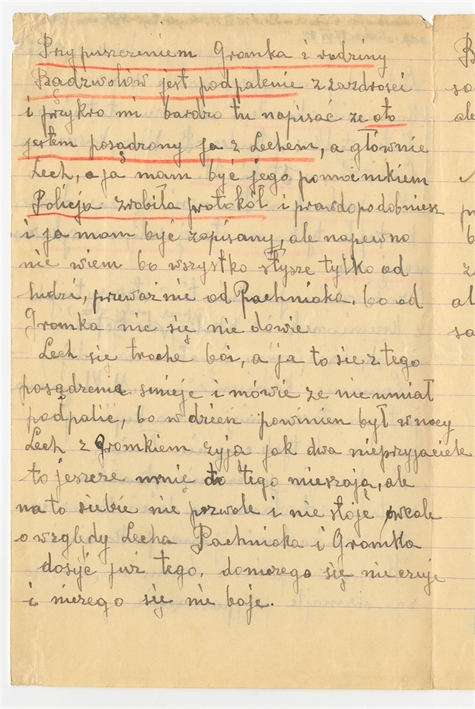 Przypuszczeniem Gromka z rodziny
Rządzwołów jest podpalenie z zazdrości
i przykro mi bardzo tu napisać ze oto
jestem posądzony ja z Lechem, a głównie
Lech, a ja mam być jego pomocnikiem
Policja zrobiła protokół i prawdopodobniesz
i ja mam być zapisany, ale napewno
nie wiem bo wszystko słysze tylko od
ludzi, przeważnie od Pachniaka, bo od
Gromka nic się nie dowie.
Lech się troche boi, a ja to sie z tego
posądzenia smieje i mówie ze nie umiał
podpalic, bo w dzień powinien był w nocy
Lech z Gromkiem zyją jak dwa nieprzyjaciele
to jeszcze mnie do tego mieszają, ale
na to siebie nie pozwole i nie stoję wcale
o względy Lecha Pachniaka i Gromka
dosyć już tego, doniczego się nie czuje
i niczego się nie boje.